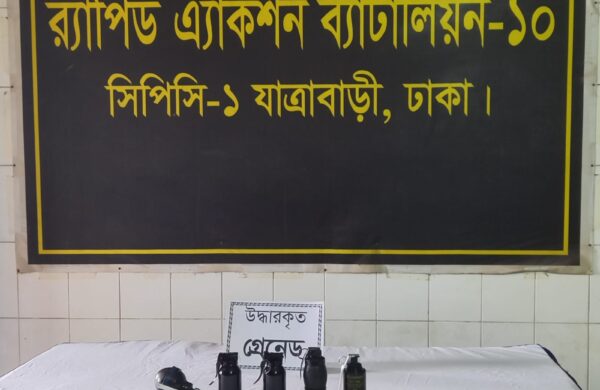 র‍্যাপিড এ্যাকশন ব্যাটালিয়ন-১০
সিপিসি-১ যাত্রাবাড়ী, ঢাকা।
উদ্ধারকৃত
গ্রেনেড